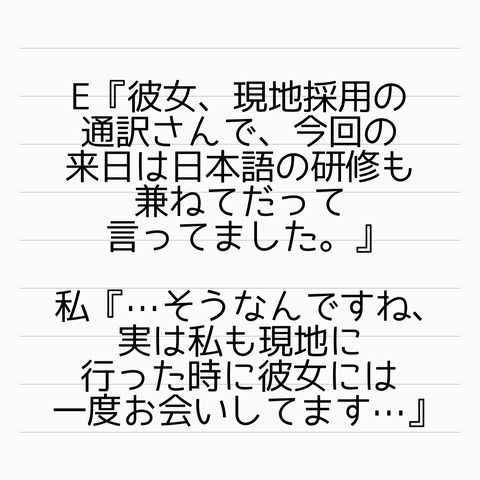 E『彼女、現地採用の
通訳さんで、今回の
来日は日本語の研修も
兼ねてだって
言ってました。』
私『…そうなんですね、
実は私も現地に
行った時に彼女には
一度お会いしてます…』